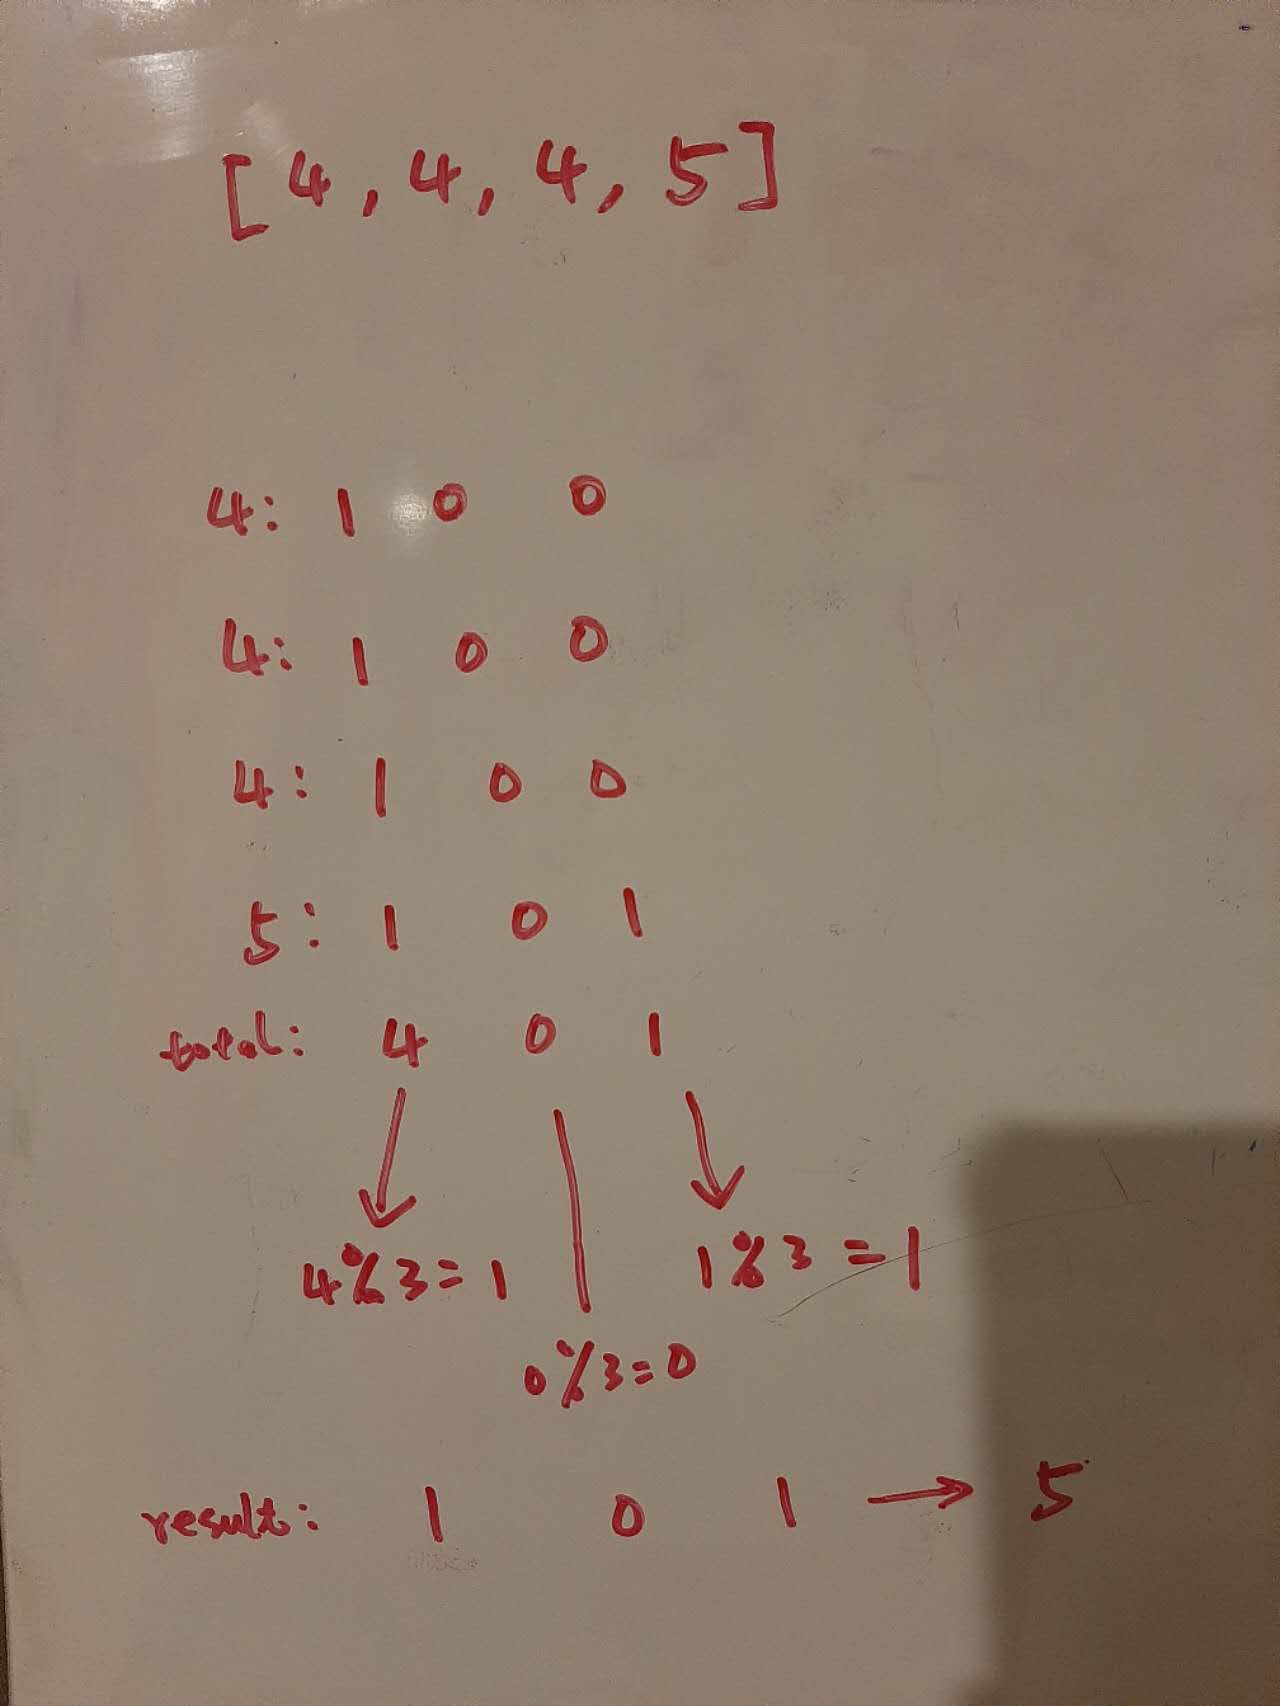 [4, 4, 4, 5]
4: 1 0 0
4: 1 0 0
4: 1 0 0
5: 1 0 1
total: 4 0 1
4%3=1 1%3=1
0%3=0
result: 1 0 1 → 5